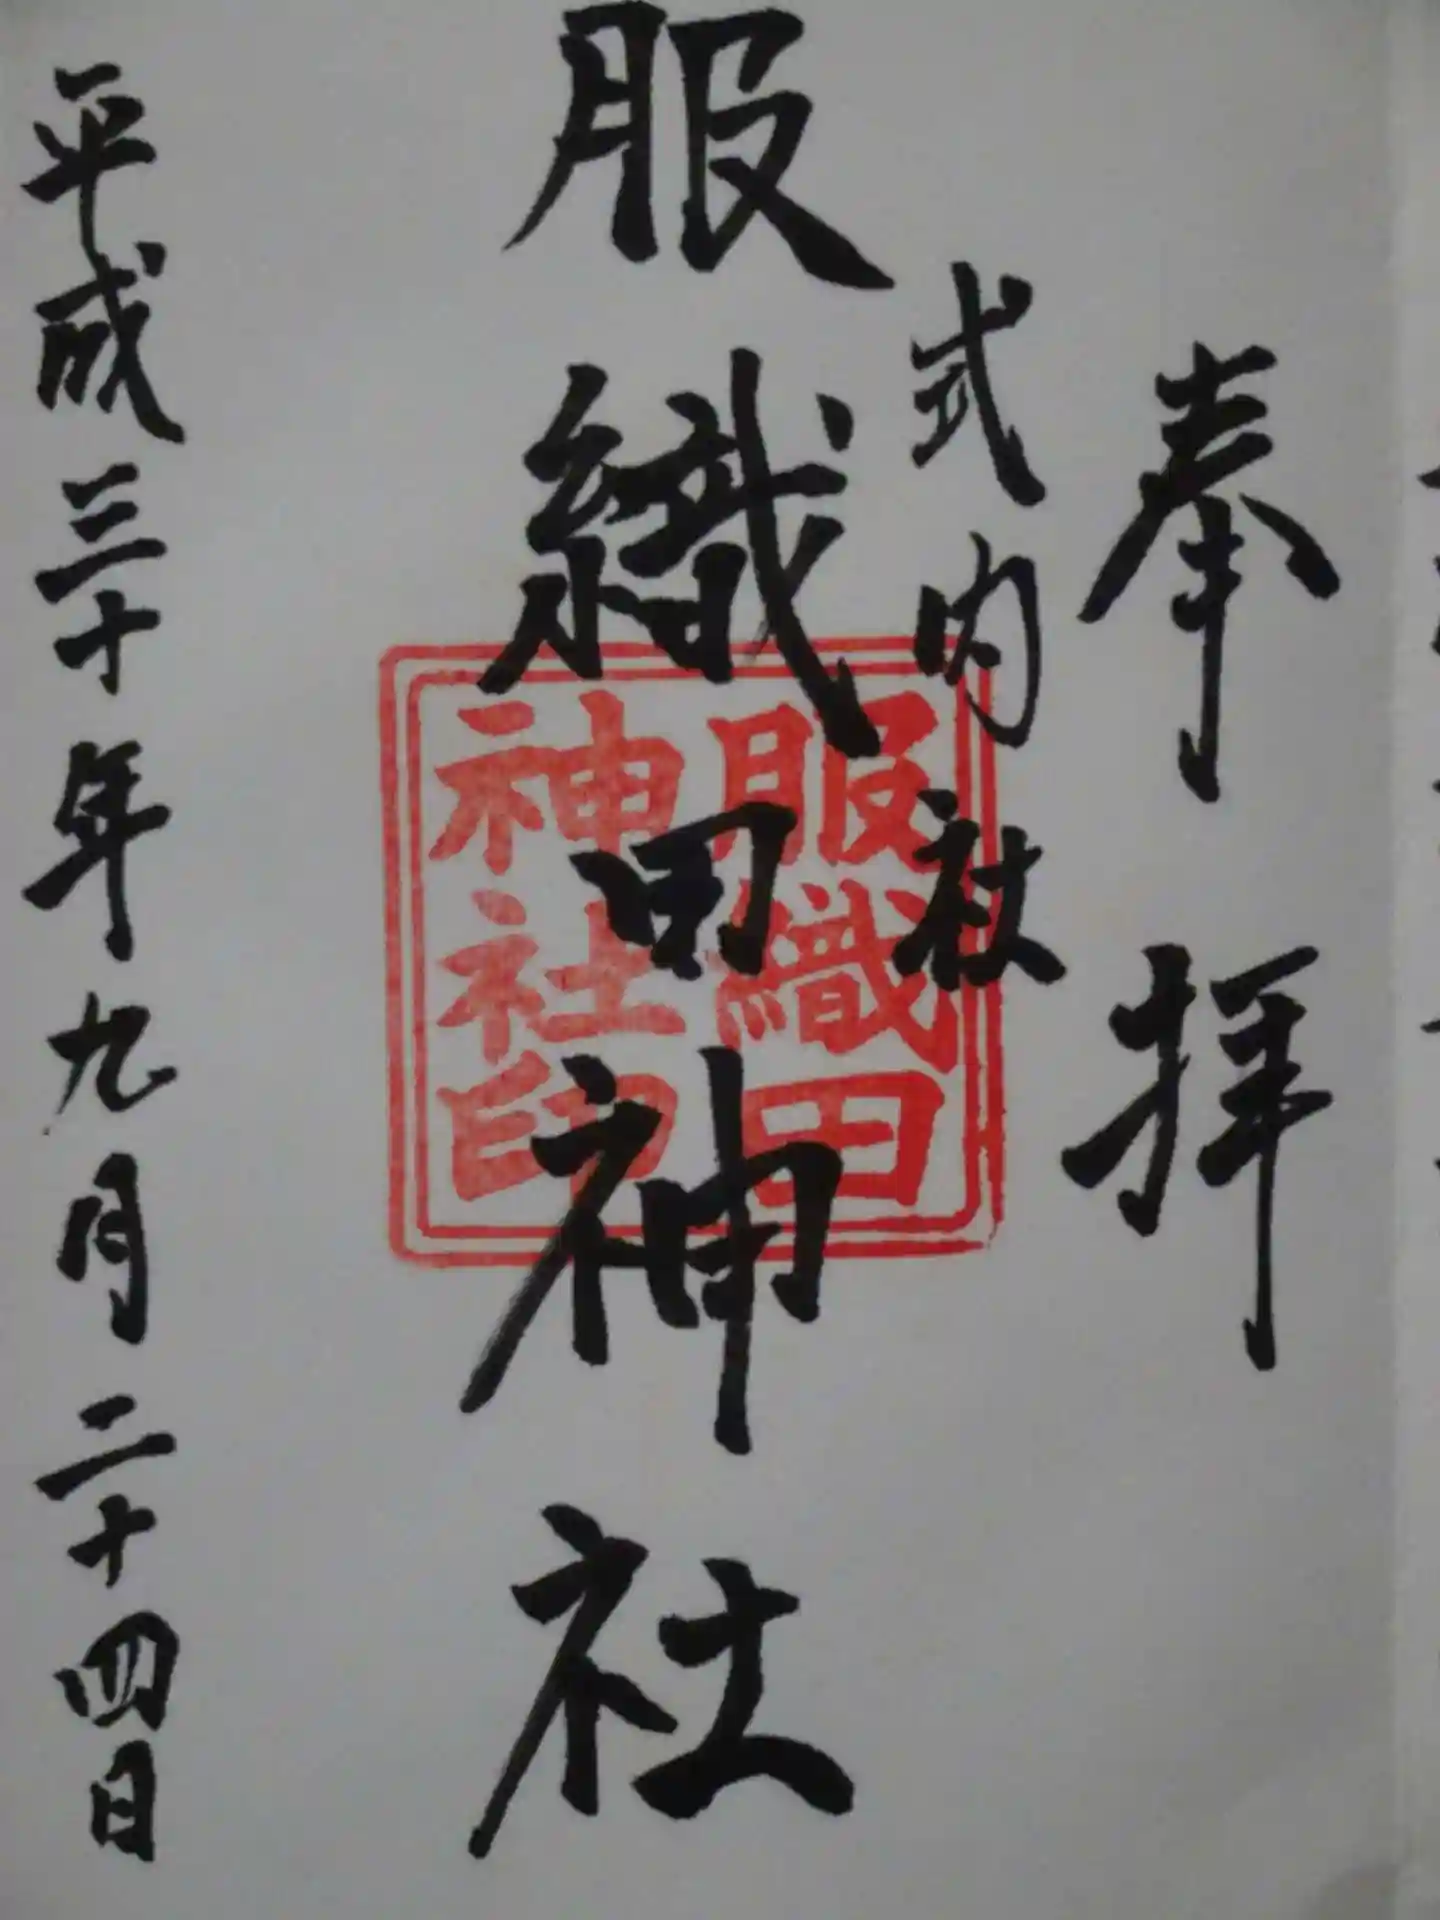 奉拝
式内社
服織田神社
服織田
神社印
平成三十年九月二十四日